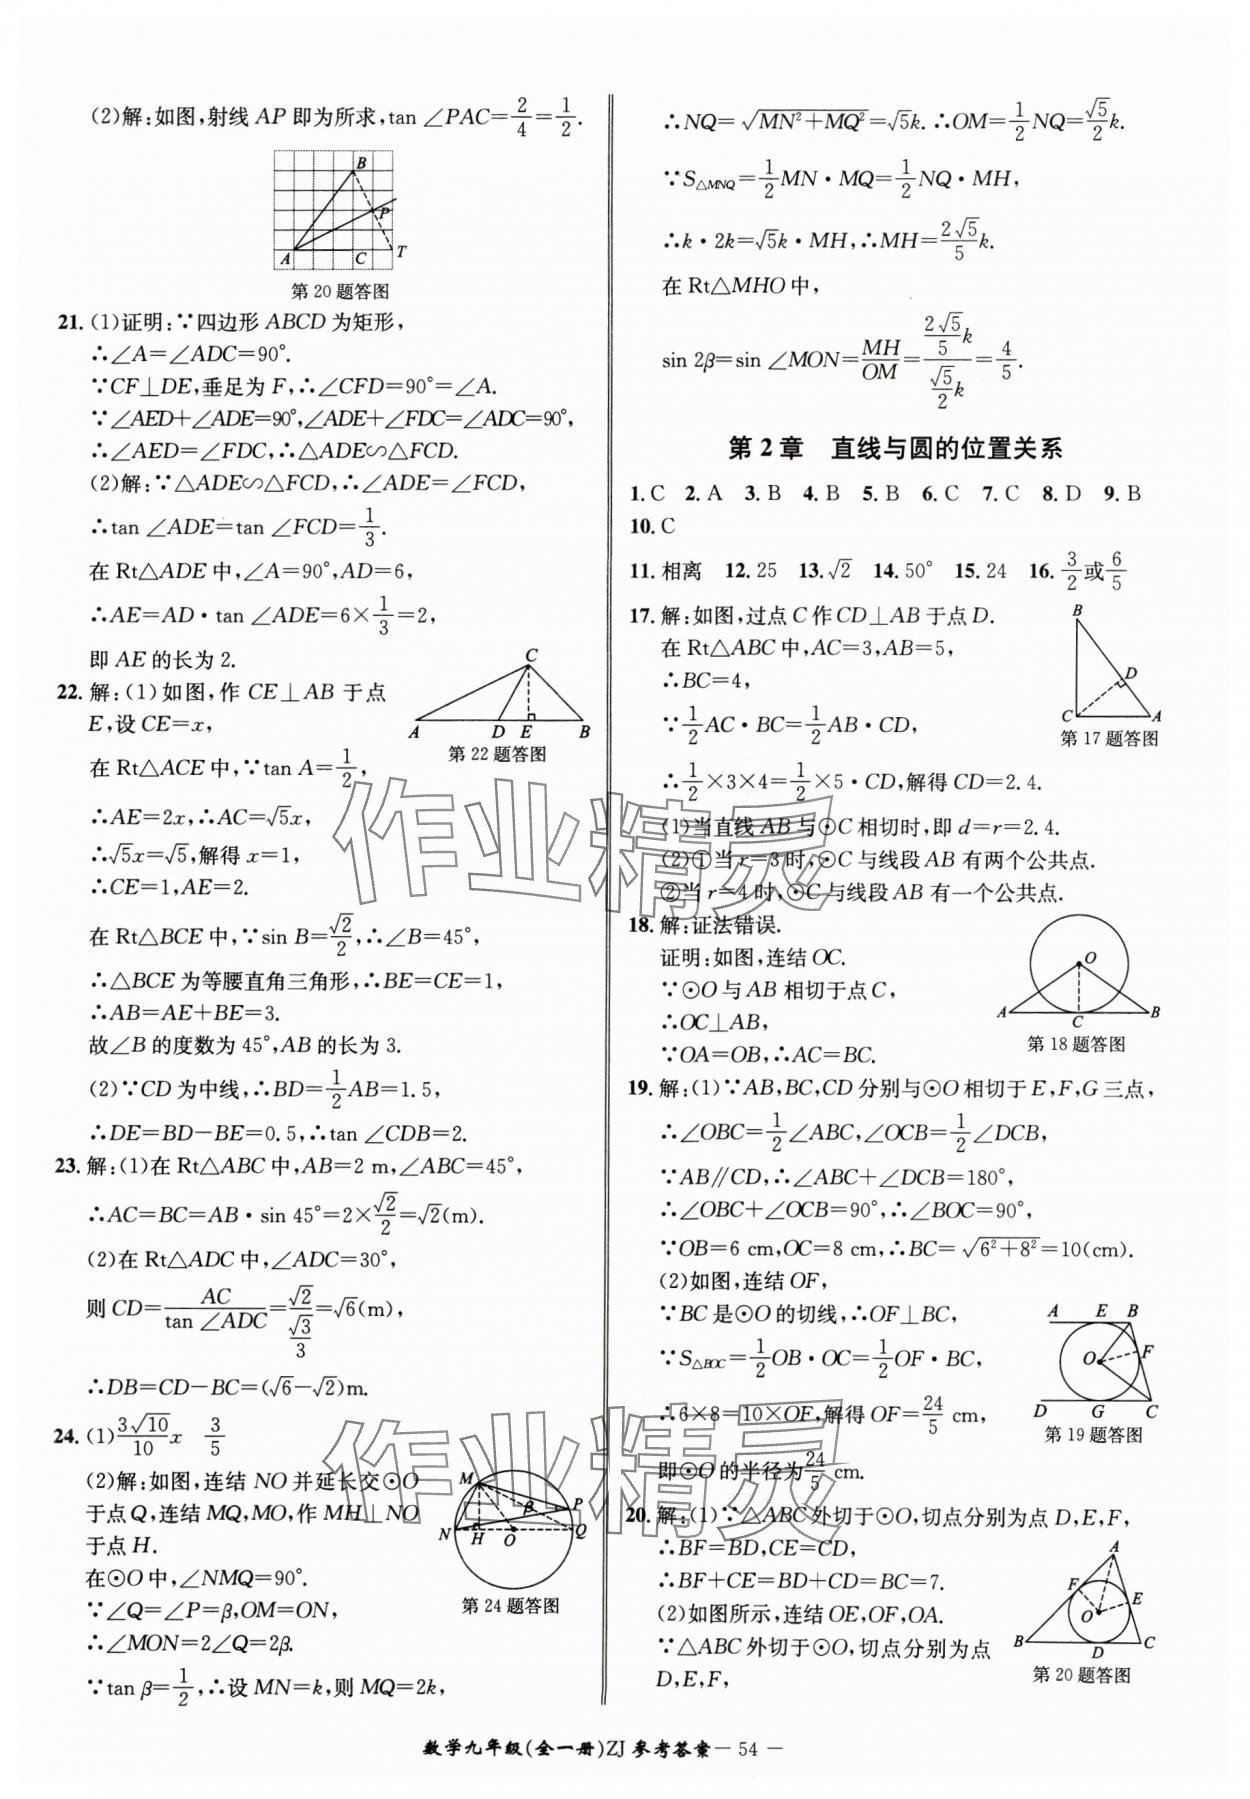 (2)解:如图,射线 AP 即为所求,tan ∠PAC=2/4=1/2.
B
P
A C T
第 20 题答图
21. (1)证明:∵四边形 ABCD 为矩形,
∴∠A=∠ADC=90°.
∵CF⊥DE,垂足为 F,∴∠CFD=90°=∠A.
∵∠AED+∠ADE=90°,∠ADE+∠FDC=∠ADC=90°,
∴∠AED=∠FDC,∴△ADE∽△FCD.
(2)解:∵△ADE∽△FCD,∴∠ADE=∠FCD,
∴tan ∠ADE=tan ∠FCD=1/3.
在 Rt△ADE 中,∠A=90°,AD=6,
∴AE=AD·tan ∠ADE=6×1/3=2,
即 AE 的长为 2.
22. 解:(1)如图,作 CE⊥AB 于点
E,设 CE=x,
C
A D E B
第 22 题答图
在 Rt△ACE 中,∵tan A=1/2,
∴AE=2x,∴AC=√5x,
∴√5x=√5,解得 x=1,
∴CE=1,AE=2.
在 Rt△BCE 中,∵sin B=√2/2,∴∠B=45°,
∴△BCE 为等腰直角三角形,∴BE=CE=1,
∴AB=AE+BE=3.
故∠B 的度数为 45°,AB 的长为 3.
(2)∵CD 为中线,∴BD=1/2AB=1.5,
∴DE=BD−BE=0.5,∴tan ∠CDB=2.
23. 解:(1)在 Rt△ABC 中,AB=2 m,∠ABC=45°,
∴AC=BC=AB·sin 45°=2×√2/2=√2(m).
(2)在 Rt△ADC 中,∠ADC=30°,
则 CD=AC/tan ∠ADC=√2/(√3/3)=√6(m),
∴DB=CD−BC=(√6−√2)m.
24. (1)3√10/10 x  3/5
(2)解:如图,连结 NO 并延长交⊙O
于点 Q,连结 MQ,MO,作 MH⊥NO
于点 H.
M
β P
N H O Q
第 24 题答图
在⊙O 中,∠NMQ=90°.
∵∠Q=∠P=β,OM=ON,
∴∠MON=2∠Q=2β.
∵tan β=1/2,∴设 MN=k,则 MQ=2k,
∴NQ=√(MN²+MQ²)=√5k.∴OM=1/2NQ=√5/2 k.
∵S△MNQ=1/2MN·MQ=1/2NQ·MH,
∴k·2k=√5k·MH,∴MH=2√5/5 k.
在 Rt△MHO 中,
sin 2β=sin ∠MON=MH/OM=(2√5/5 k)/(√5/2 k)=4/5.
第 2 章 直线与圆的位置关系
1. C 2. A 3. B 4. B 5. B 6. C 7. C 8. D 9. B
10. C
11. 相离 12. 25 13. √2 14. 50° 15. 24 16. 3/2或6/5
17. 解:如图,过点 C 作 CD⊥AB 于点 D.
在 Rt△ABC 中,AC=3,AB=5,
∴BC=4,
∵1/2AC·BC=1/2AB·CD,
B
D
C A
第 17 题答图
∴1/2×3×4=1/2×5·CD,解得 CD=2.4.
(1)当直线 AB 与⊙C 相切时,即 d=r=2.4.
(2)①当 r=3时,⊙C 与线段 AB 有两个公共点.
②当 r=4时,⊙C与线段 AB 有一个公共点.
18. 解:证法错误.
证明:如图,连结 OC.
∵⊙O 与 AB 相切于点 C,
∴OC⊥AB,
∵OA=OB,∴AC=BC.
O
A C B
第 18 题答图
19. 解:(1)∵AB,BC,CD 分别与⊙O 相切于 E,F,G 三点,
∴∠OBC=1/2∠ABC,∠OCB=1/2∠DCB,
∵AB∥CD,∴∠ABC+∠DCB=180°,
∴∠OBC+∠OCB=90°,∴∠BOC=90°,
∵OB=6 cm,OC=8 cm,∴BC=√(6²+8²)=10(cm).
(2)如图,连结 OF,
∵BC 是⊙O 的切线,∴OF⊥BC,
∵S△BOC=1/2OB·OC=1/2OF·BC,
∴6×8=10×OF,解得 OF=24/5 cm,
即⊙O 的半径为24/5 cm.
A E B
O F
D G C
第 19 题答图
20. 解:(1)∵△ABC外切于⊙O,切点分别为点 D,E,F,
∴BF=BD,CE=CD,
∴BF+CE=BD+CD=BC=7.
(2)如图所示,连结 OE,OF,OA.
∵△ABC外切于⊙O,切点分别为点
D,E,F,
A
F E
O
B D C
第 20 题答图
数学九年级(全一册)ZJ 参考答案— 54 —
作业精灵
作业精灵